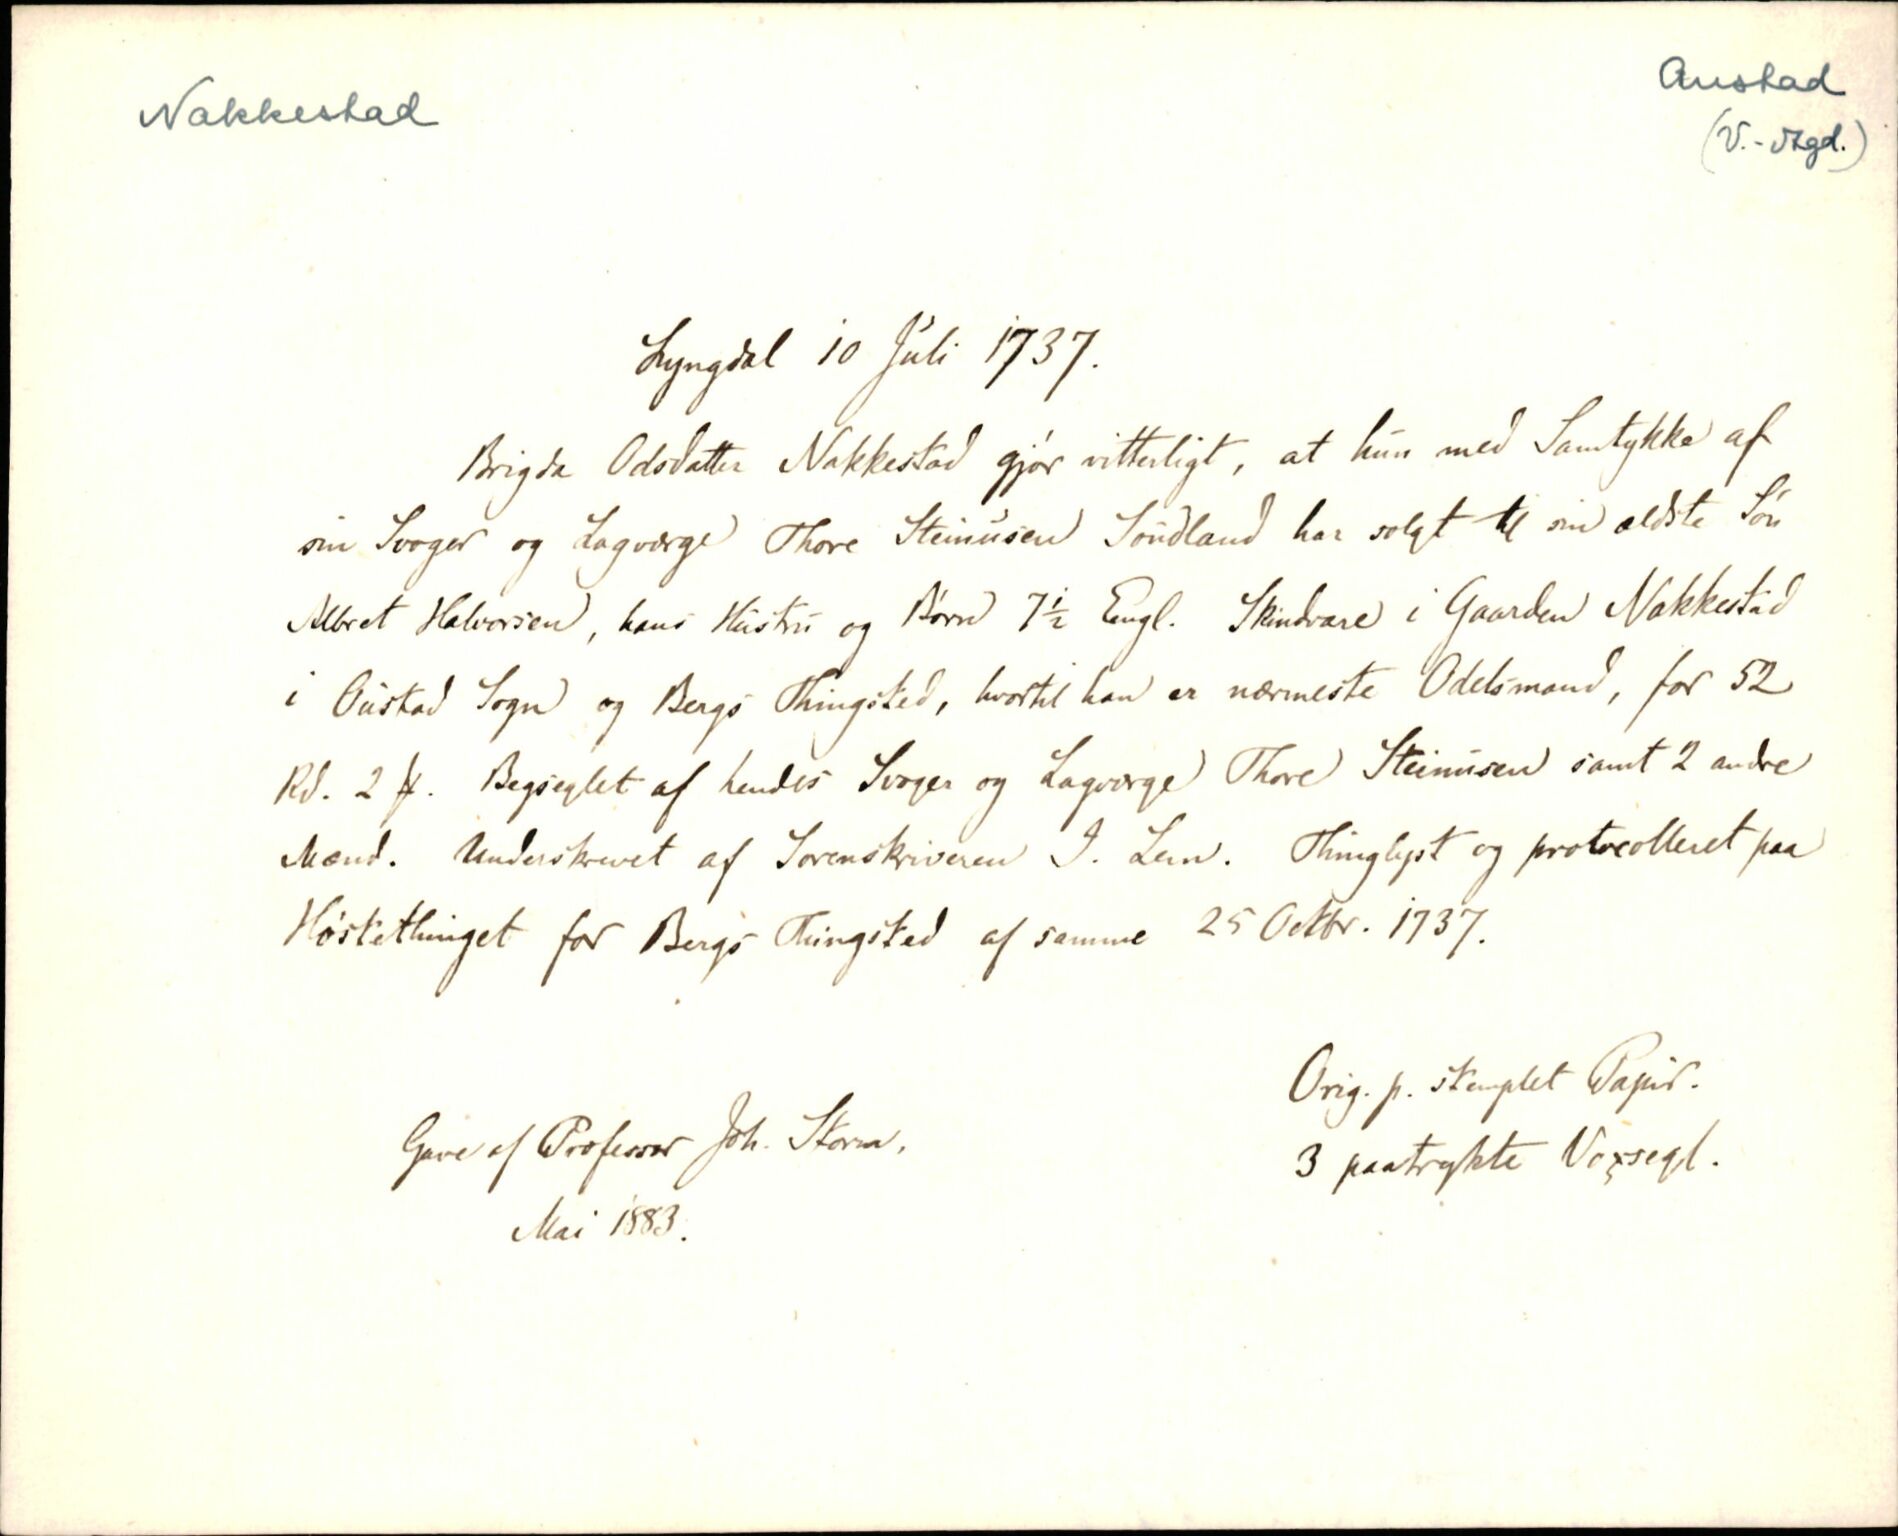 Nakkestad
Austad
(V.-Agd.)
Lyngdal 10 Juli 1737.
Brigda Odsdatter Nakkestad gjør vitterligt, at hun med Samtykke af
sin Svoger og Lagværge Thore Steinusen Sundland har solgt til sin ældste Søn
Albret Halvorsen, hans Hustru og Børn 7½ Engl. Skindvare i Gaarden Nakkestad
i Oustad Sogn og Bergs Thingsted, hvortil han er nærmeste Odelsmand, for 52
Rd. 2 ℔. Begseglet af hendes Svoger og Lagværge Thore Steinusen samt 2 andre
Mænd. Underskrevet af Sorenskriveren J. Lem. Thinglyst og protocolleret paa
Høstethinget for Bergs Thingsted af samme 25 Octbr. 1737.
Orig. p. stemplet Papir.
3 paatrykte Voxsegl.
Gave af Professor Joh. Storm,
Mai 1883.